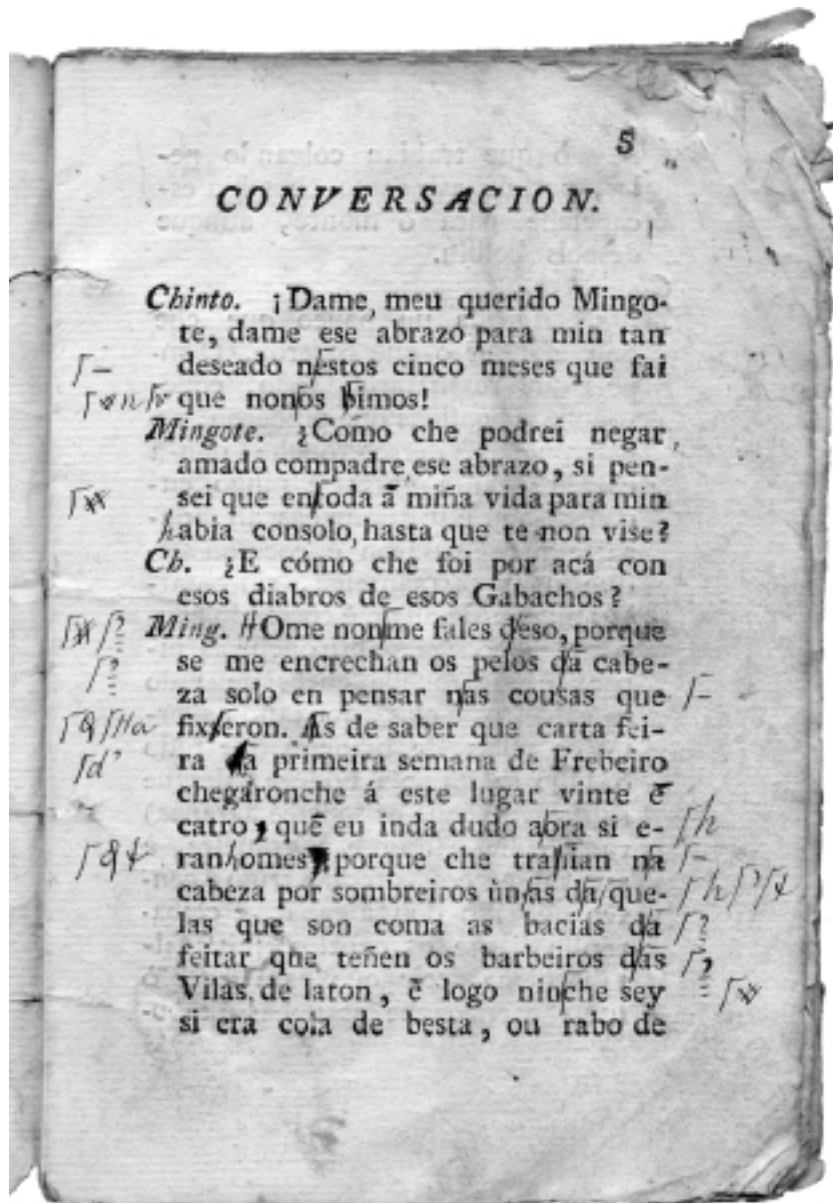 5
CONVERSACION.
Chinto. ¡Dame, meu querido Mingo-
te, dame ese abrazo para min tan
deseado nestos cinco meses que fai
que nonos bimos!
Mingote. ¿Cómo che podrei negar,
amado compadre, ese abrazo, si pen-
sei que en toda à miña vida para min
habia consolo, hasta que te non vise?
Ch. ¿E cómo che foi por acá con
esos diabros de esos Gabachos?
Ming. HOme non me fales deso, porque
se me encrechan os pelos da cabe-
za solo en pensar nas cousas que
fixeron. As de saber que carta fei-
ra da primeira semana de Frebeiro
chegáronche á este lugar vinte ē
catro, quē eu inda dudo aora si e-
ran homes, porque che trahian na
cabeza por sombreiros ùnas da que-
las que son coma as bacias da
feitar que teñen os barbeiros das
Vilas, de laton, ē logo nin che sey
si era cola de besta, ou rabo de